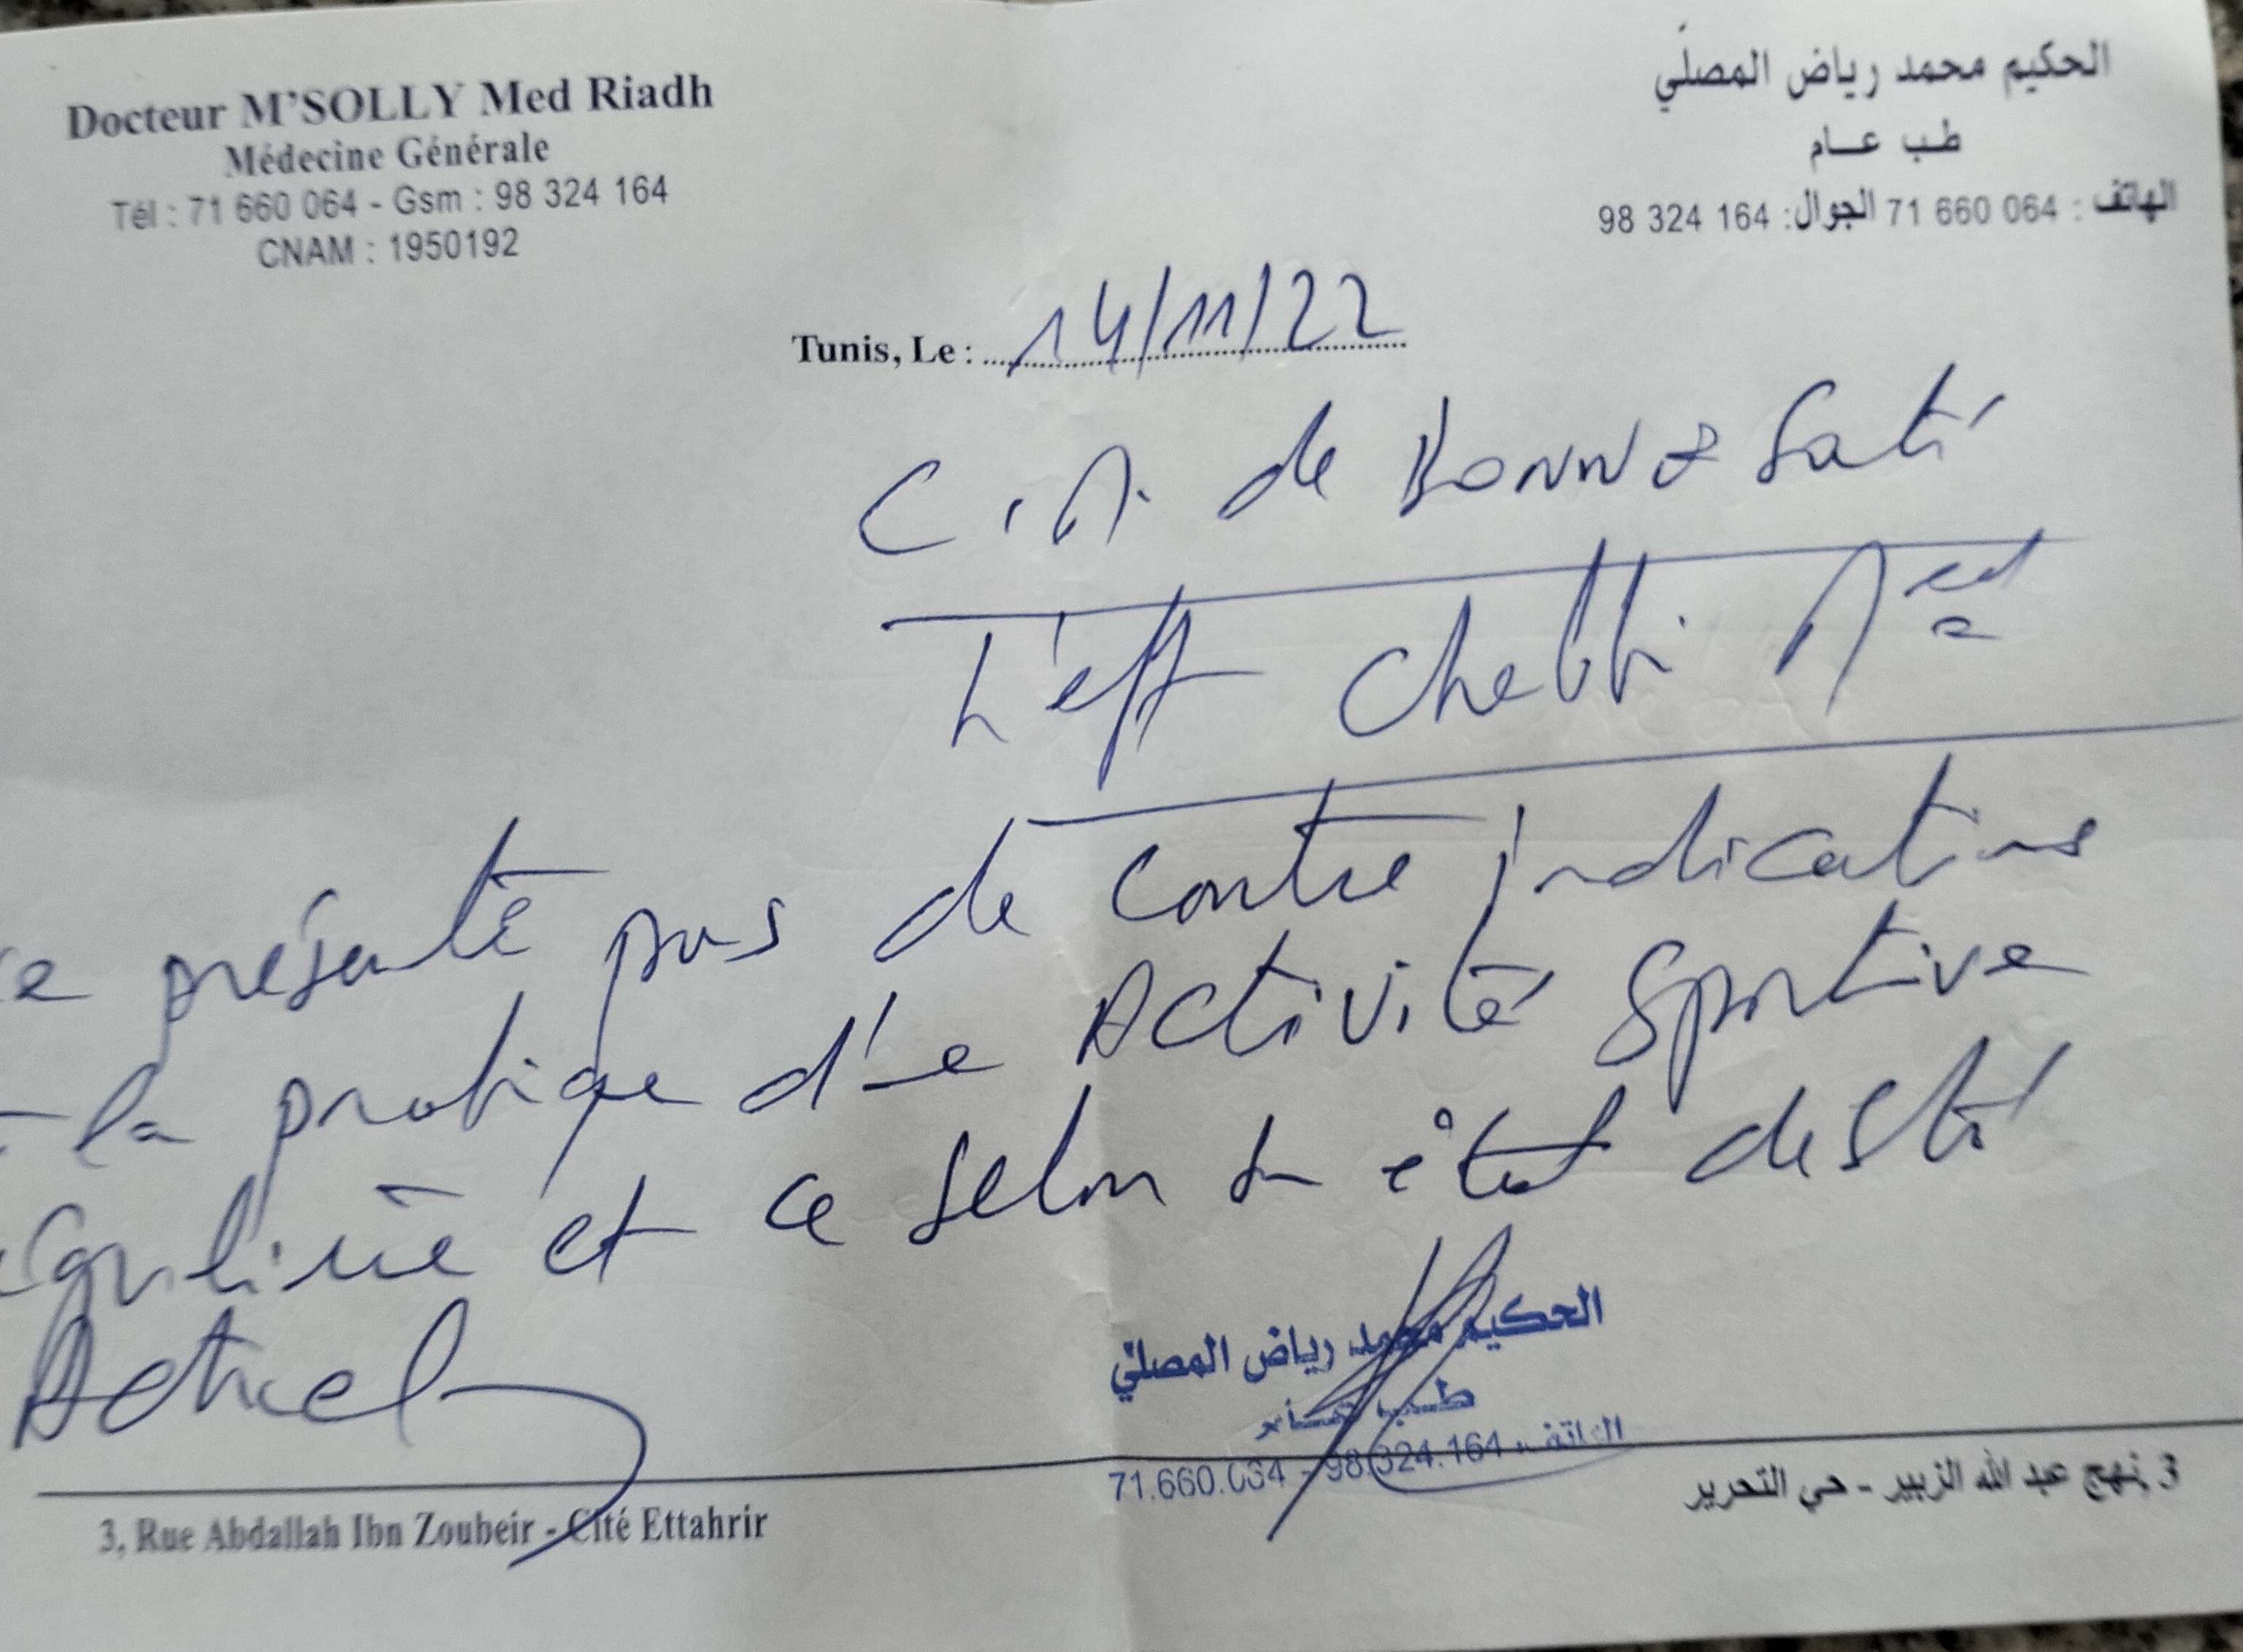 Docteur M'SOLLY Med Riadh
Médecine Générale
Tél : 71 660 064 - Gsm : 98 324 164
CNAM : 1950192
الحكيم محمد رياض المصلّي
طب عام
الهاتف : 71 660 064 الجوال: 98 324 164
Tunis, Le : 14/11/22
C.M. de Bonne Santé
L'eft Chebbi Med
présente pas de contre indications
la pratique d'une Activité Sportive
régulière et ce selon son état de Sté
Actuel
الحكيم محمد رياض المصلّي
طب عام
الهاتف : 71.660.064 - 98.324.164
3, Rue Abdallah Ibn Zoubeir - Cité Ettahrir
3 نهج عبد الله الزبير - حي التحرير